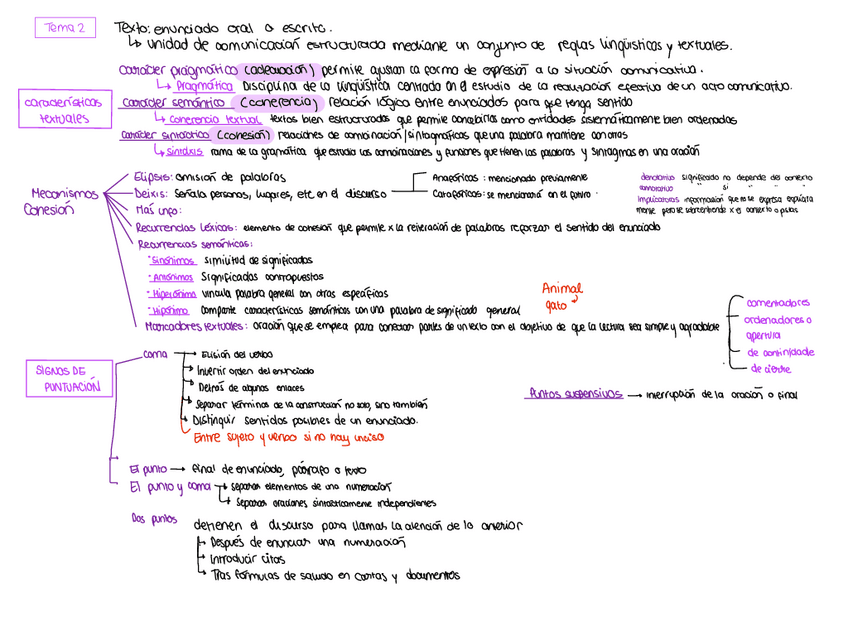 Tema 2
Texto: enunciado oral o escrito.
↳ unidad de comunicación estructurada mediante un conjunto de reglas lingüísticas y textuales.
características textuales
carácter pragmático (adecuación) permite ajustar la forma de expresión a la situación comunicativa.
↳ Pragmática Disciplina de la lingüística centrada en el estudio de la realización efectiva de un acto comunicativo.
carácter semántico (coherencia) relación lógica entre enunciados para que tenga sentido
↳ Coherencia textual textos bien estructurados que permite concebirlos como entidades sistemáticamente bien ordenados
carácter sintáctico (cohesión) relaciones de combinación/sintagmáticas que una palabra mantiene con otros
↳ sintaxis rama de la gramática que estudia las combinaciones y funciones que tienen las palabras y sintagmas en una oración
Mecanismos Cohesión
Elipsis: omisión de palabras
Deixis: señala personas, lugares, etc en el discurso
Anafóricos: mencionado previamente
Catafóricos: se mencionará en el futuro.
denotativo significado no depende del contexto
connotativo " si " " "
Implicaturas información que no se expresa explícita
mente pero se sobreentiende x el contexto o pistas
Mas info:
Recurrencias Léxicas: elemento de cohesión que permite x la reiteración de palabras reforzar el sentido del enunciado
Recurrencias semánticas:
· Sinónimos similitud de significados
· Antónimos significados contrapuestos
· Hiperónimo vincula palabra general con otras específicas
· Hipónimo comparte características semánticas con una palabra de significado general
Animal
gato
Marcadores textuales: oración que se emplea para conectar partes de un texto con el objetivo de que la lectura sea simple y agradable
comentadores
ordenadores o
apertura
de continuidade
de cierre
SIGNOS DE PUNTUACIÓN
coma → Elisión del verbo
Invertir orden del enunciado
Detrás de algunos enlaces
Separar términos de la construcción no solo, sino también
Distinguir sentidos posibles de un enunciado.
Entre sujeto y verbo si no hay inciso
Puntos suspensivos → interrupción de la oración o final
El punto → final de enunciado, párrafo o texto
El punto y coma → separar elementos de una numeración
↳ separar oraciones sintácticamente independientes
Dos puntos
detienen el discurso para llamar la atención de lo anterior
Después de enunciar una numeración
Introducir citas
Tras fórmulas de saludo en cartas y documentos